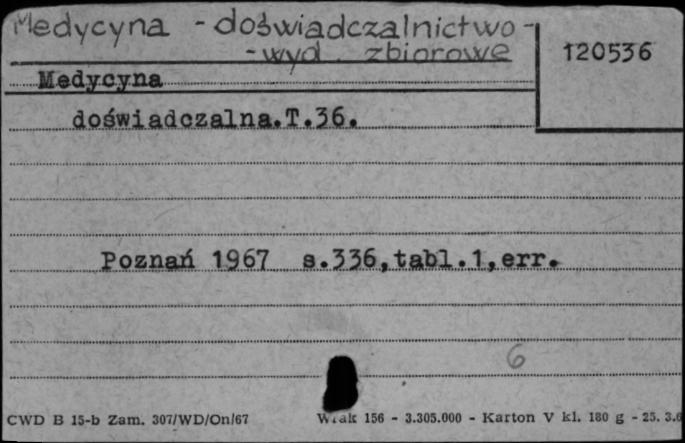 Medycyna - doświadczalnictwo -
- wyd. zbiorowe
120536
Medycyna
doświadczalna.T.36.
Poznań 1967 s.336,tabl.1,err.
6
CWD B 15-b Zam. 307/WD/On/67 156 - 3.305.000 - Karton V kl. 180 g - 25. 3.6